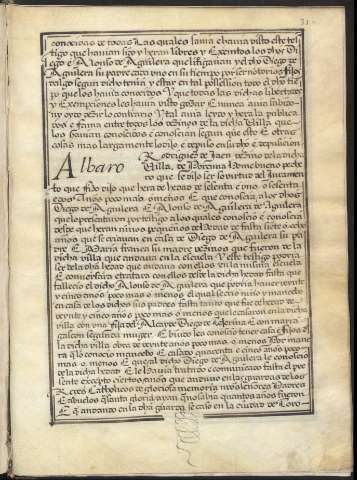 31
conoscidas de todas Las quales fama chauia visto este tes
tigo que hauian sido y heran libres y Exsentos los dhos Di
ego E Alonso de Aguilera que litigauan y el dho Diego de
Aguilera su padre cada vno en su tiempo por ser notorios fijos
dalgo segun dicho tenia y estar en tal possession todo el dho tie
po que los hauia conoscido Y que todas las dichas libertades
y Exempciones les hauia visto godar E nunca auia sabido
ny oydo dezir lo contrario Y tal auia seydo y hera la publica
voz E fama entre todos los vezinos de la dicha Villa que
los hauian conoscido E conoscian segun que esto E otras
cosas mas largamente lo dixo E depuso en su dho E depusicion
Albaro Rodriguez de Jaen vezino de la dicha
Villa de Porcuna home bueno peche
ro que se dixo ser so virtud del Juramen
to que fizo dijo que hera de hedad de sesenta E vno o sesenta
E dos Años poco mas o menos E que conoscia a los dhos
Diego de Aguilera E Alonso de Aguilera de Aguilera
que lo presentauan por testigo a los quales conoscio E conoscia
desde que heran ninos pequeños de hedad de fasta siete o ocho
años que se criauan en casa de Diego de Aguilera su pa
dre E Maria franca su madre vezinos que fueron de la
dicha villa que andauan en la escuela Y este testigo podria
ser de la dha hedad que andaua con ellos en la misma escuela
E conuersara E tratara con ellos desde la dicha hedad fasta que
fallescio el dicho Alonso de Aguilera que podria hauer veynte
y cinco años poco mas o menos el qual se crio niño y mancebo
en casa de los dichos sus padres fasta tanto que fue de hedad de
veynte y cinco años poco mas o menos que le casaron en la dicha
villa con vna fija del Alcayde Diego de
gascon segasci su muger E bibio E le conoscio tener casa E fijos en
la dicha villa obra de veynte años poco mas o menos Por mane
ra q lo conoscio mancebo E casado quarenta E cinco años poco
mas o menos E que al dicho Diego de Aguilera le conoscio
de la dicha hedad E le hauia tratado E comunicado fasta el pre
sente excepto ciertos años que anduuo en las guardas de los
Reyes Catholicos de gloriosa memoria nros señores Padres
E abuelos q santa gloria ayan que no sabia quantos años fueron
E q andando en la dha guarda se caso en la ciudad de Toro